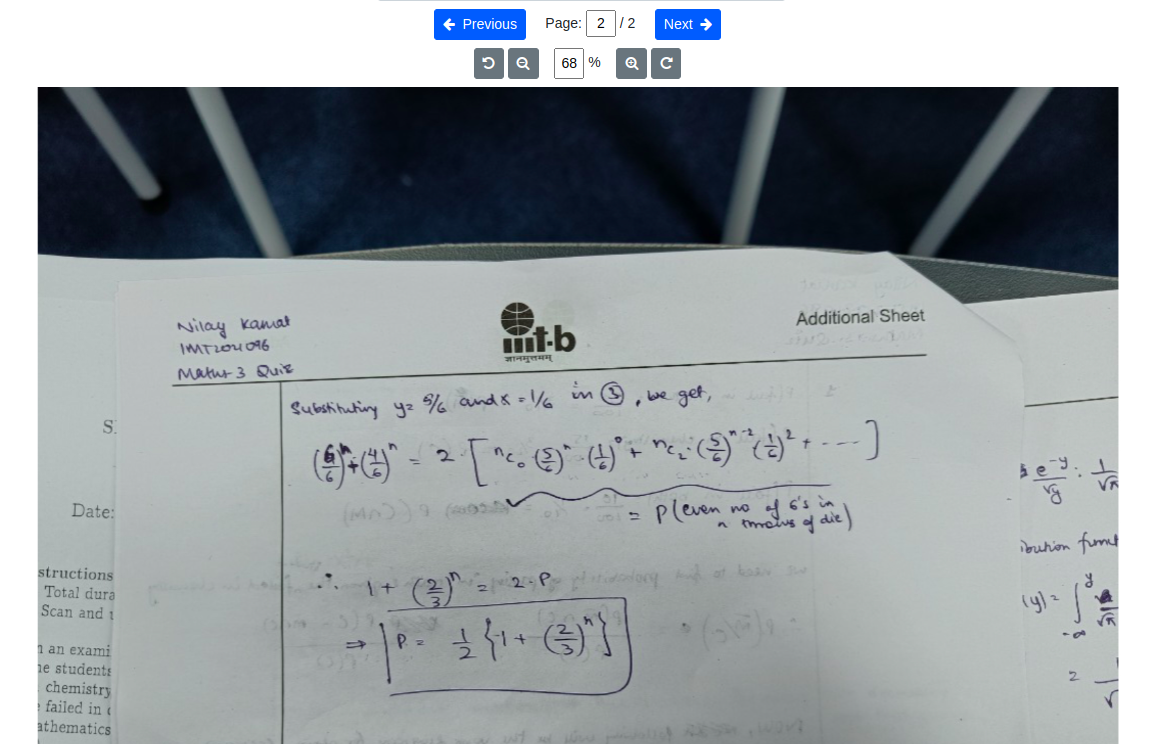 Previous Page: 2 / 2 Next
68 %
Nilay Kamat
IMT2021096
Maths 3 Quiz
iiit-b
ज्ञानमुत्तमम्
Additional Sheet
Substituting y = 5/6 and x = 1/6 in ③, we get,
(6/6)^n + (4/6)^n = 2 [ nC0 (5/6)^n (1/6)^0 + nC2 · (5/6)^n-2 (1/6)^2 + ---- ]
= P(even no of 6's in
n throws of die)
∴ 1 + (2/3)^n = 2 · P
⇒ P = 1/2 {1 + (2/3)^n}
S
Date:
structions
Total dura
Scan and
n an exami
he students
chemistry
failed in
athematics
e^-y/√y · 1/√π
ibution funct
(y) = ∫ -∞ y